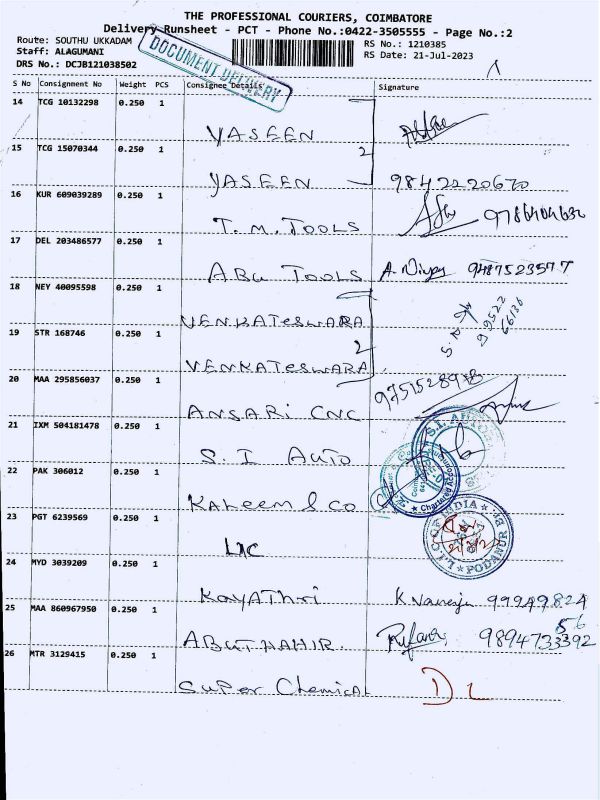 THE PROFESSIONAL COURIERS, COIMBATORE
Delivery Runsheet - PCT - Phone No.:0422-3505555 - Page No.:2
Route: SOUTHU UKKADAM
RS No.: 1210385
Staff: ALAGUMANI
RS Date: 21-Jul-2023
DRS No.: DCJB121038502
DOCUMENT DELIVERY
S No Consignment No Weight PCS Consignee Details Signature
14 TCG 10132298 0.250 1
YASEEN
15 TCG 15070344 0.250 1
2
YASEEN 9842220670
16 KUR 609039289 0.250 1
T.M. TOOLS
17 DEL 203486577 0.250 1
ABU TOOLS
18 NEY 40095598 0.250 1
VENKATESWARA
99522
66136
19 STR 168746 0.250 1
2
VENKATESWARA
20 MAA 295856037 0.250 1
ANSARI CNC
21 IXM 504181478 0.250 1
S. I AUTO
22 PAK 306012 0.250 1
KALEEM & CO
Chartered
23 PGT 6239569 0.250 1
LIC
L.I.C. OF INDIA PODANUR
24 MYD 3039209 0.250 1
KAYATHRI 99949824
56
25 MAA 860967950 0.250 1
ABUTHAHIR. 9894733392
26 MTR 3129415 0.250 1
SUPER CHEMICAL D L